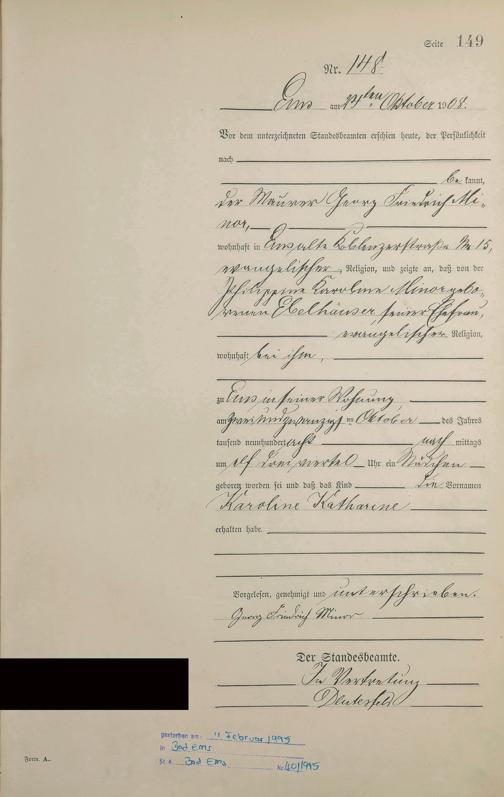 Seite 149
Nr. 148.
Ems am 24ten Oktober 1908.
Vor dem unterzeichneten Standesbeamten erschien heute, der Persönlichkeit
nach
be kannt,
der Maurer Georg Friedrich Mi-
nor,
wohnhaft in Ems, alte Koblenzerstraße No 15,
evangelischer Religion, und zeigte an, daß von der
Philippine Karoline Minor gebo-
renen Ebelhäuser, seiner Ehefrau,
evangelischer Religion,
wohnhaft bei ihm,
zu Ems in seiner Wohnung
am zwei und zwanzigsten Oktober des Jahres
tausend neunhundert acht nach mittags
um elf dreiviertel Uhr ein Mädchen
geboren worden sei und daß das Kind die Vornamen
Karoline Katharine
erhalten habe.
Vorgelesen, genehmigt und unterschrieben.
Georg Friedrich Minor
Der Standesbeamte.
In Vertretung
gestorben am: 11 Februar 1995
in Bad Ems
St. A. Bad Ems Nr. 40/1995
Form. A.